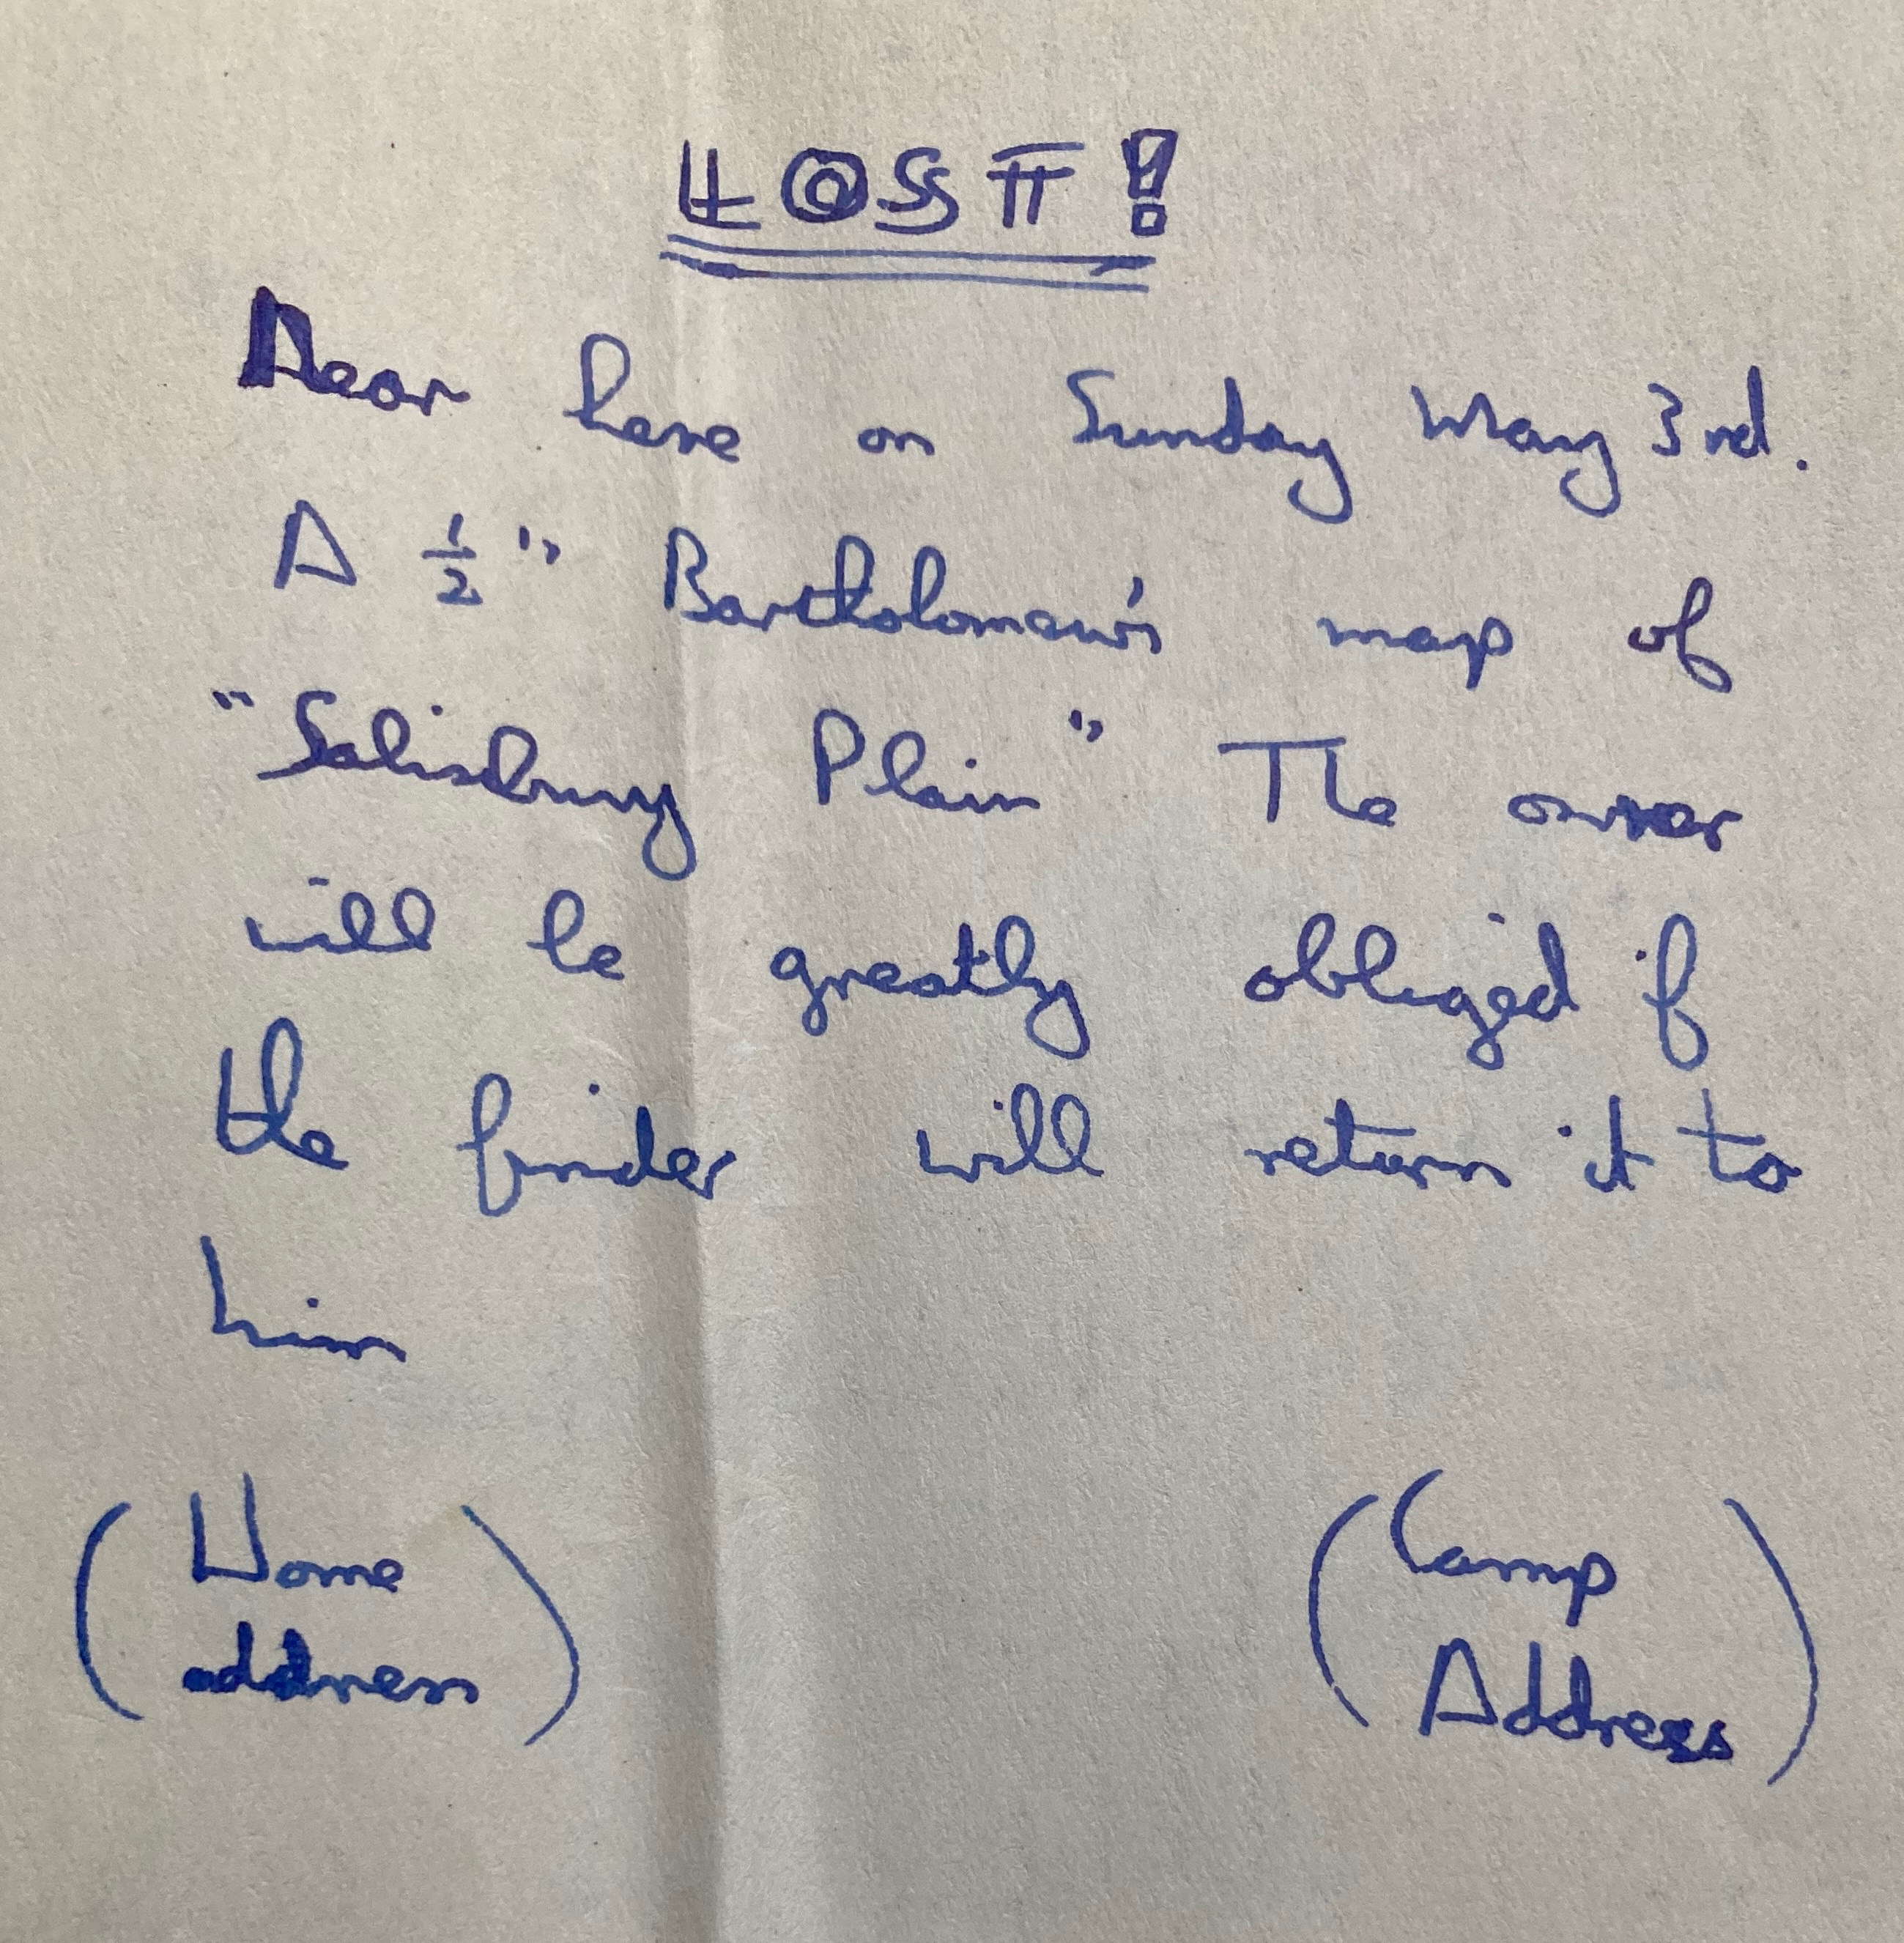 LOST!
Near here on Sunday May 3rd.
A ½" Bartholomew's map of
"Salisbury Plain" The owner
will be greatly obliged if
the finder will return it to
him
(Home address) (Camp Address)